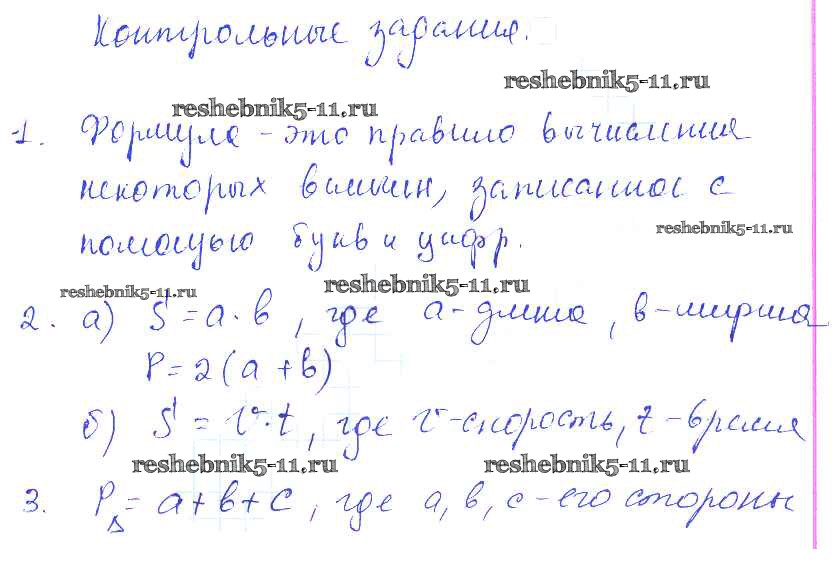 Контрольные задания.
reshebnik5-11.ru
reshebnik5-11.ru
1. Формула - это правило вычисления
некоторых величин, записанное с
reshebnik5-11.ru
помощью букв и цифр.
reshebnik5-11.ru
reshebnik5-11.ru
2. а) S = a · b, где a - длина, b - ширина
P = 2(a + b)
б) S = v · t, где v - скорость, t - время
reshebnik5-11.ru
reshebnik5-11.ru
3. P△ = a + b + c, где a, b, c - его стороны